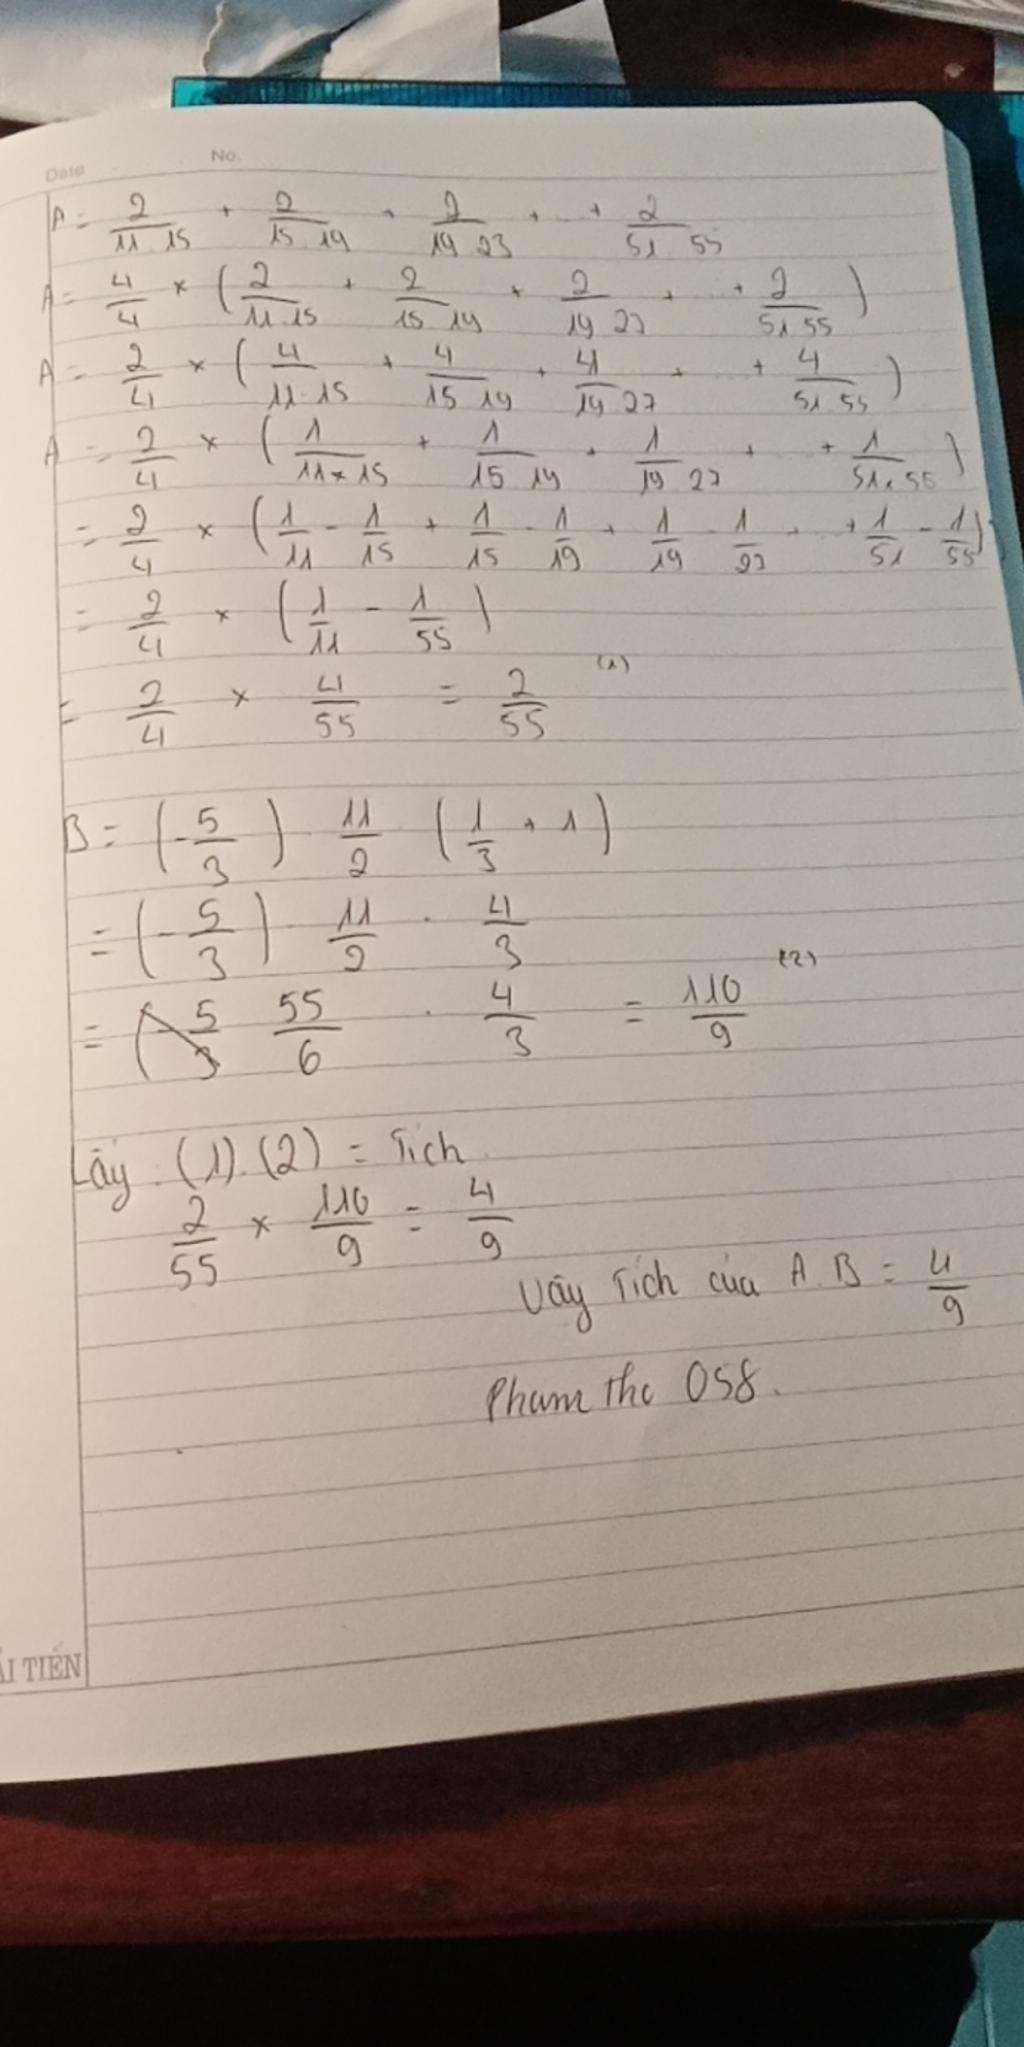 Date No.
A = 2/11.15 + 2/15.19 + 2/19.23 + ... + 2/51.55
A = 4/4 × (2/11.15 + 2/15.19 + 2/19.23 + ... + 2/51.55)
A = 2/4 × (4/11.15 + 4/15.19 + 4/19.23 + ... + 4/51.55)
A = 2/4 × (1/11×15 + 1/15.19 + 1/19.23 + ... + 1/51.55)
= 2/4 × (1/11 - 1/15 + 1/15 - 1/19 + 1/19 - 1/23 ... + 1/51 - 1/55)
= 2/4 × (1/11 - 1/55)
= 2/4 × 4/55 = 2/55 (1)
B = (-5/3) . 11/2 (1/3 + 1)
= (-5/3) . 11/2 . 4/3
= 55/6 . 4/3 = 110/9 (2)
Lấy : (1).(2) = Tích
2/55 × 110/9 = 4/9
Vậy Tích của A.B = 4/9
Pham the 058.
ẢI TIẾN